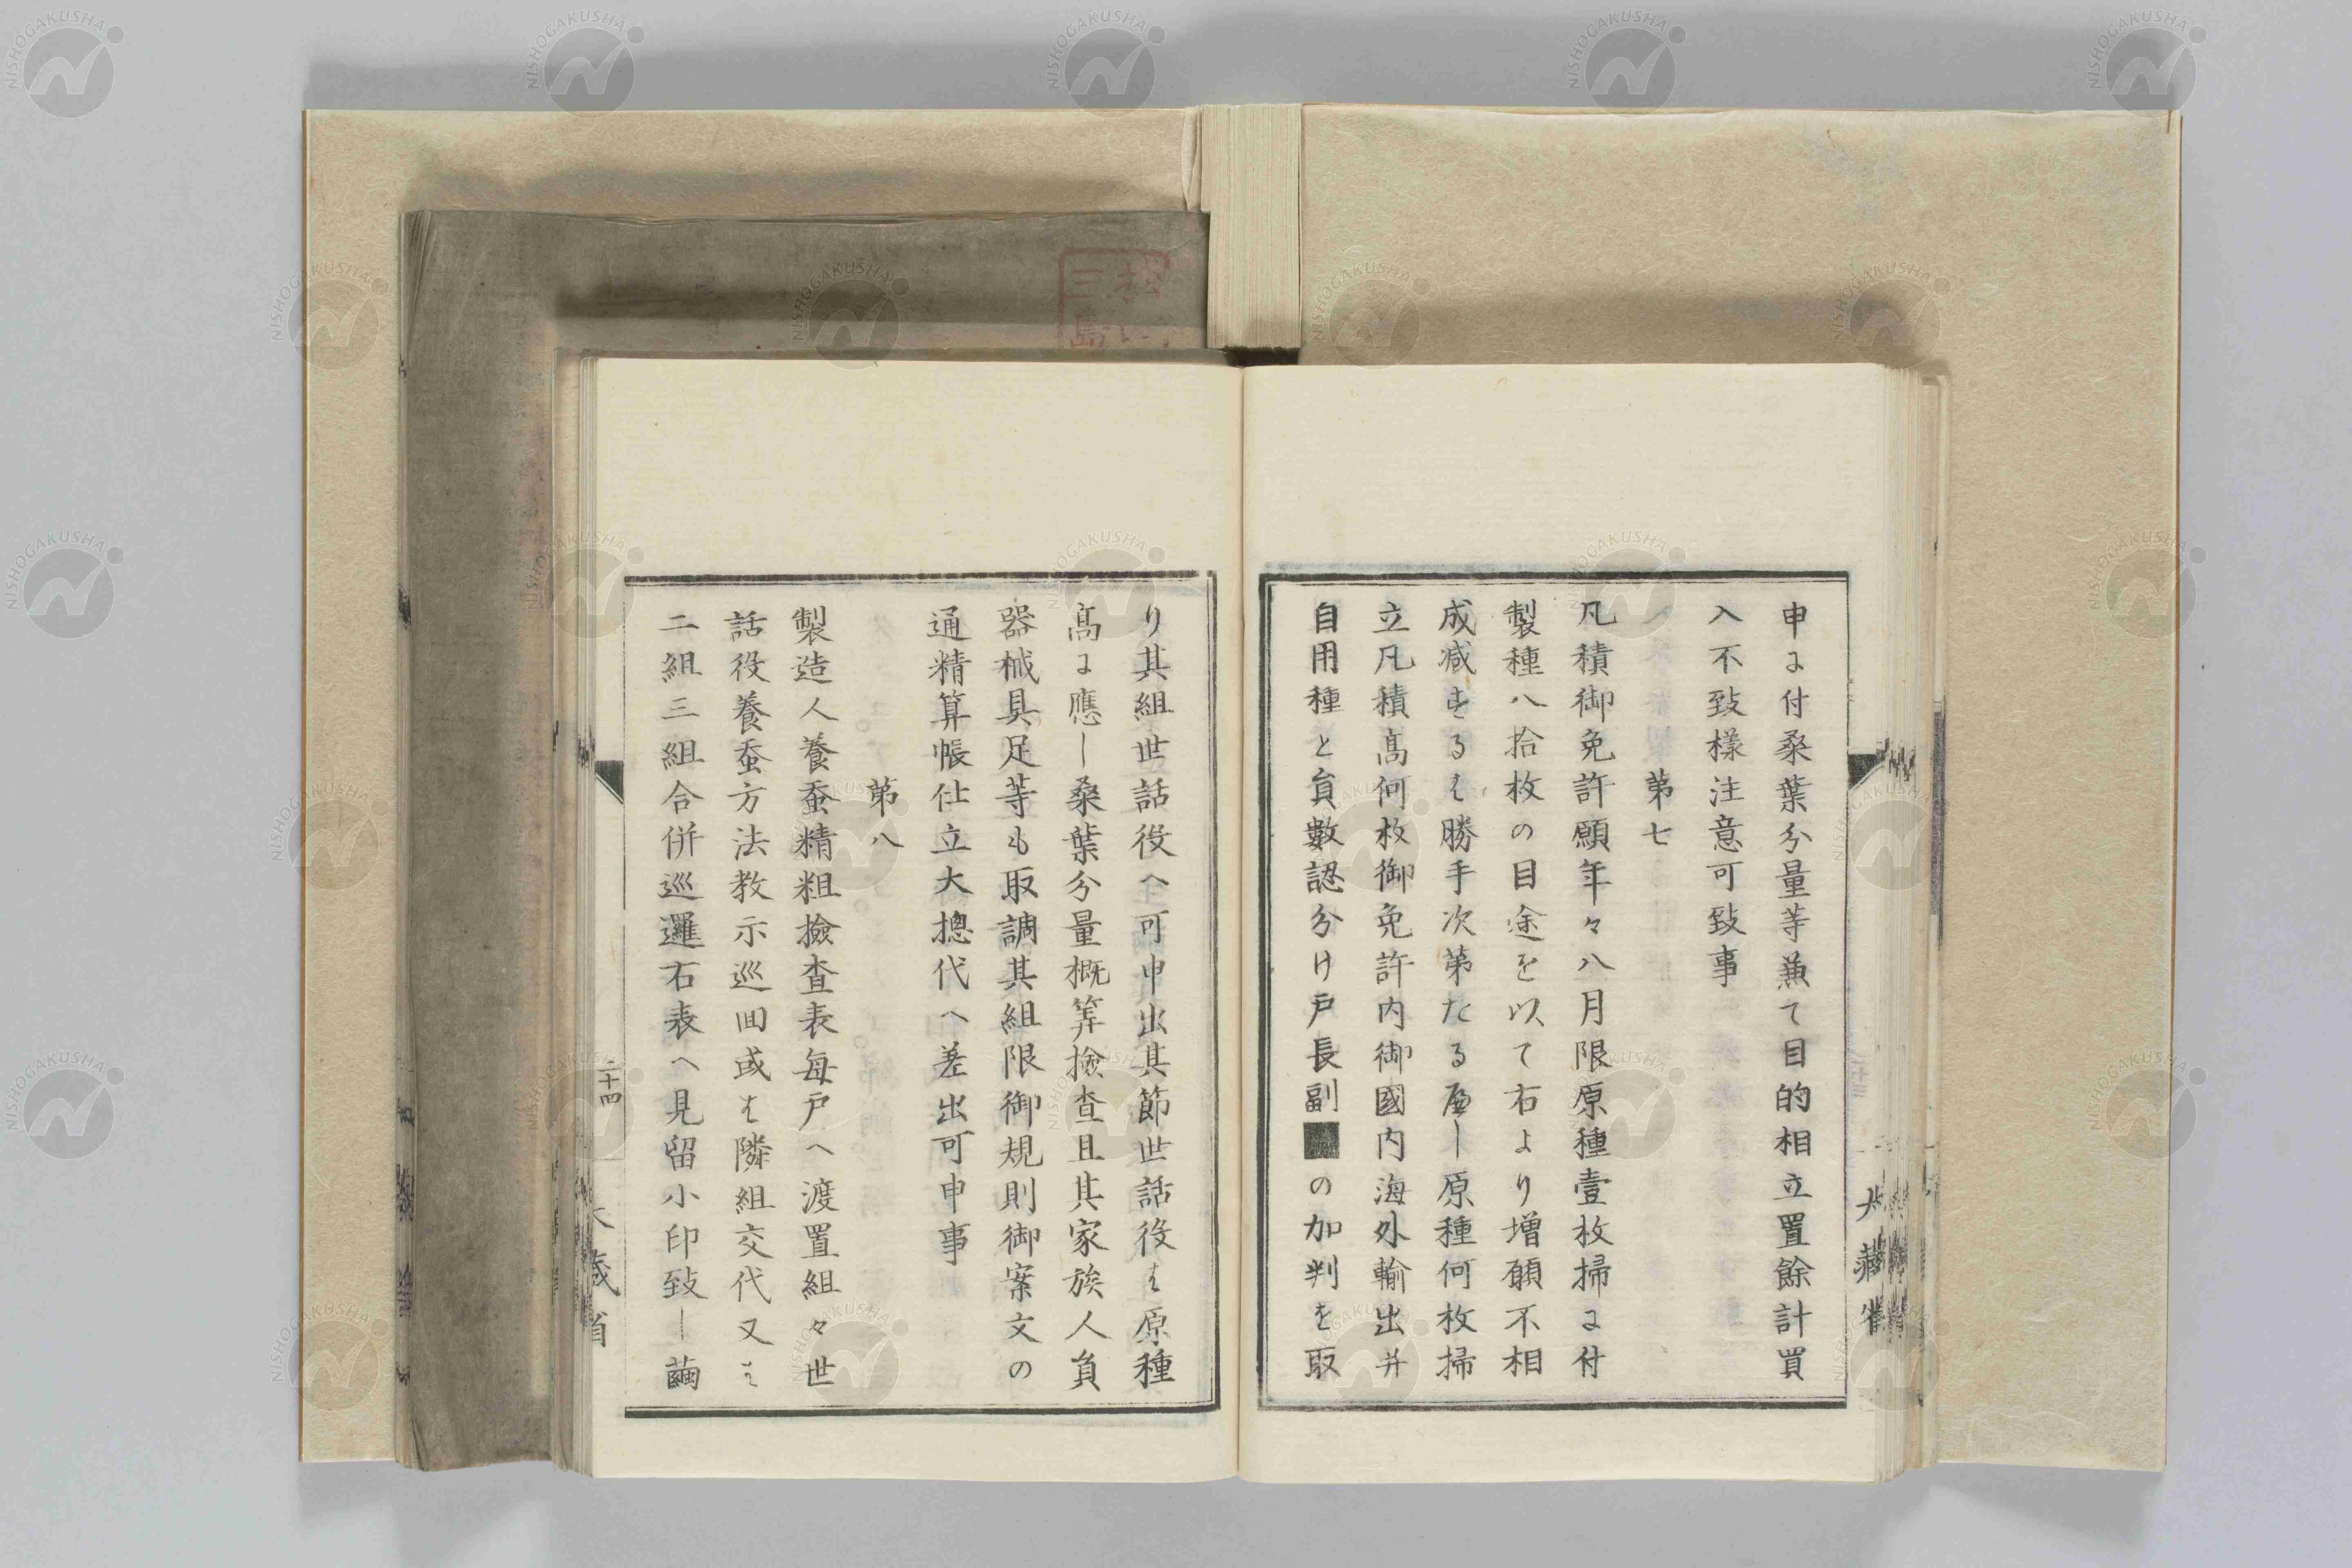 申に付桑葉分量等兼て目的相立置餘計買
入不致様注意可致事
第七
凡積御免許願年々八月限原種壹枚掃に付
製種八拾枚の目途を以て右より増願不相
成减するは勝手次第たるへし原種何枚掃
立凡積髙何枚御免許内御國内海外輸出并
自用種と員數認分け戸長副■の加判を取
り其組世話役へ可申出其節世話役は原種
髙に應し桑葉分量概筭撿查且其家族人員
器械具足等も取調其組限御規則御案文の
通精算帳仕立大摠代へ差出可申事
第八
製造人養蚕精粗撿查表每戸へ渡置組々世
話役養蚕方法教示巡回或は隣組交代又は
二組三組合併巡邏右表へ見留小印致し繭
二十四
大藏省
大藏省
NISHOGAKUSHA